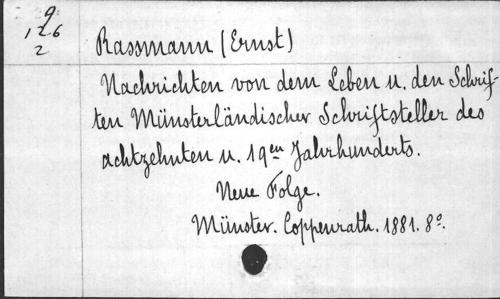 9
126
2
Rassmann (Ernst)
Nachrichten von dem Leben u. den Schrif-
ten Münsterländischer Schriftsteller des
achtzehnten u. 19en Jahrhunderts.
Neue Folge.
Münster. Coppenrath. 1881. 8o.